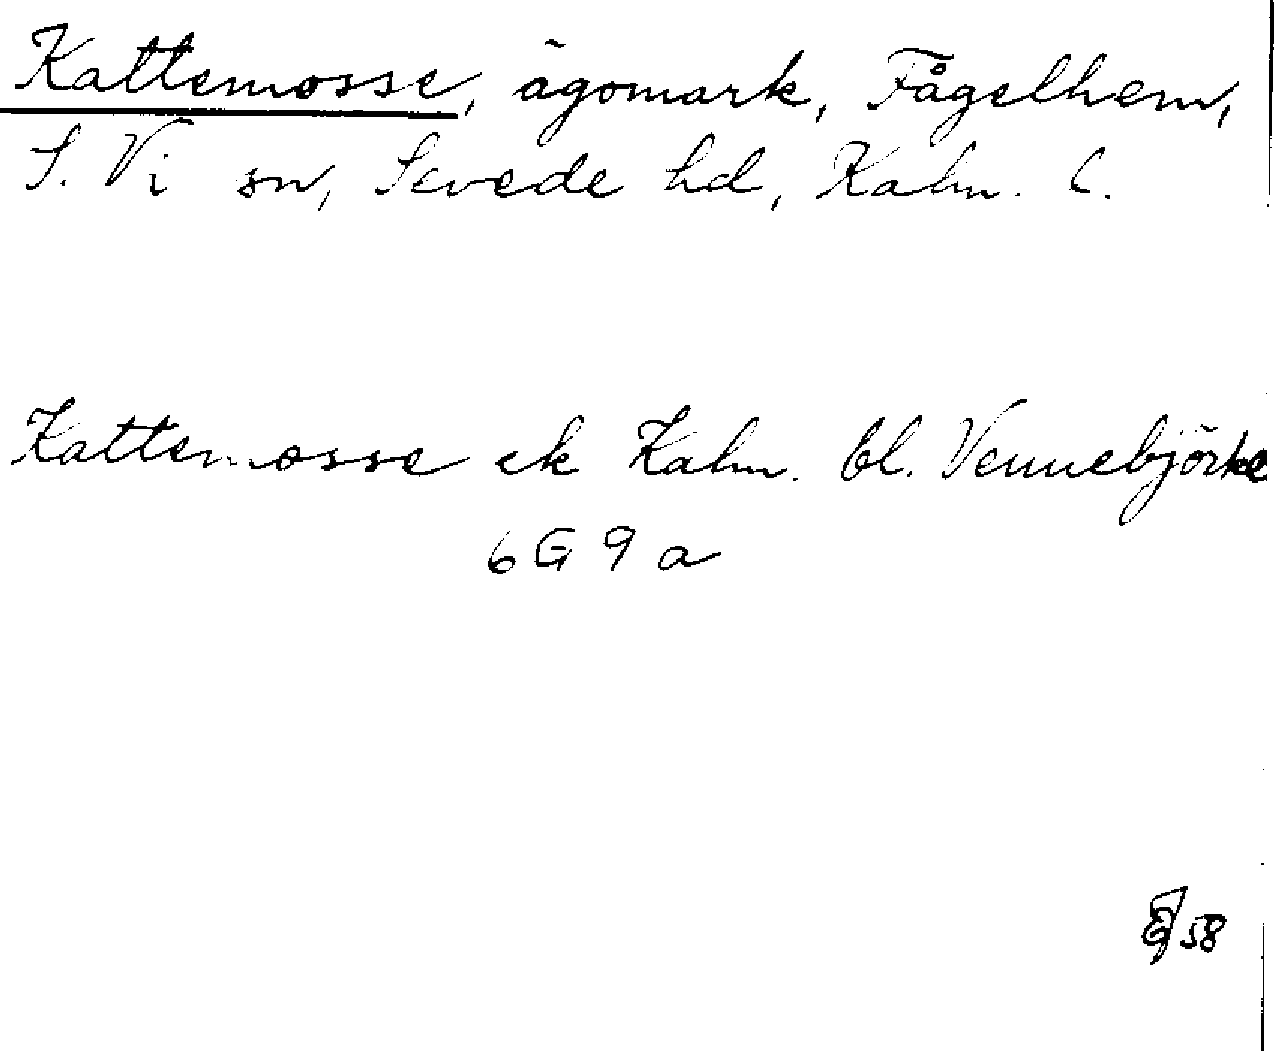 Kattemosse, ägomark, Fågelhem,
S. Vi sn, Sevede hd, Kalm. l.
Kattemosse ek Kalm. bl. Vennebjörke
6 G 9 a
58